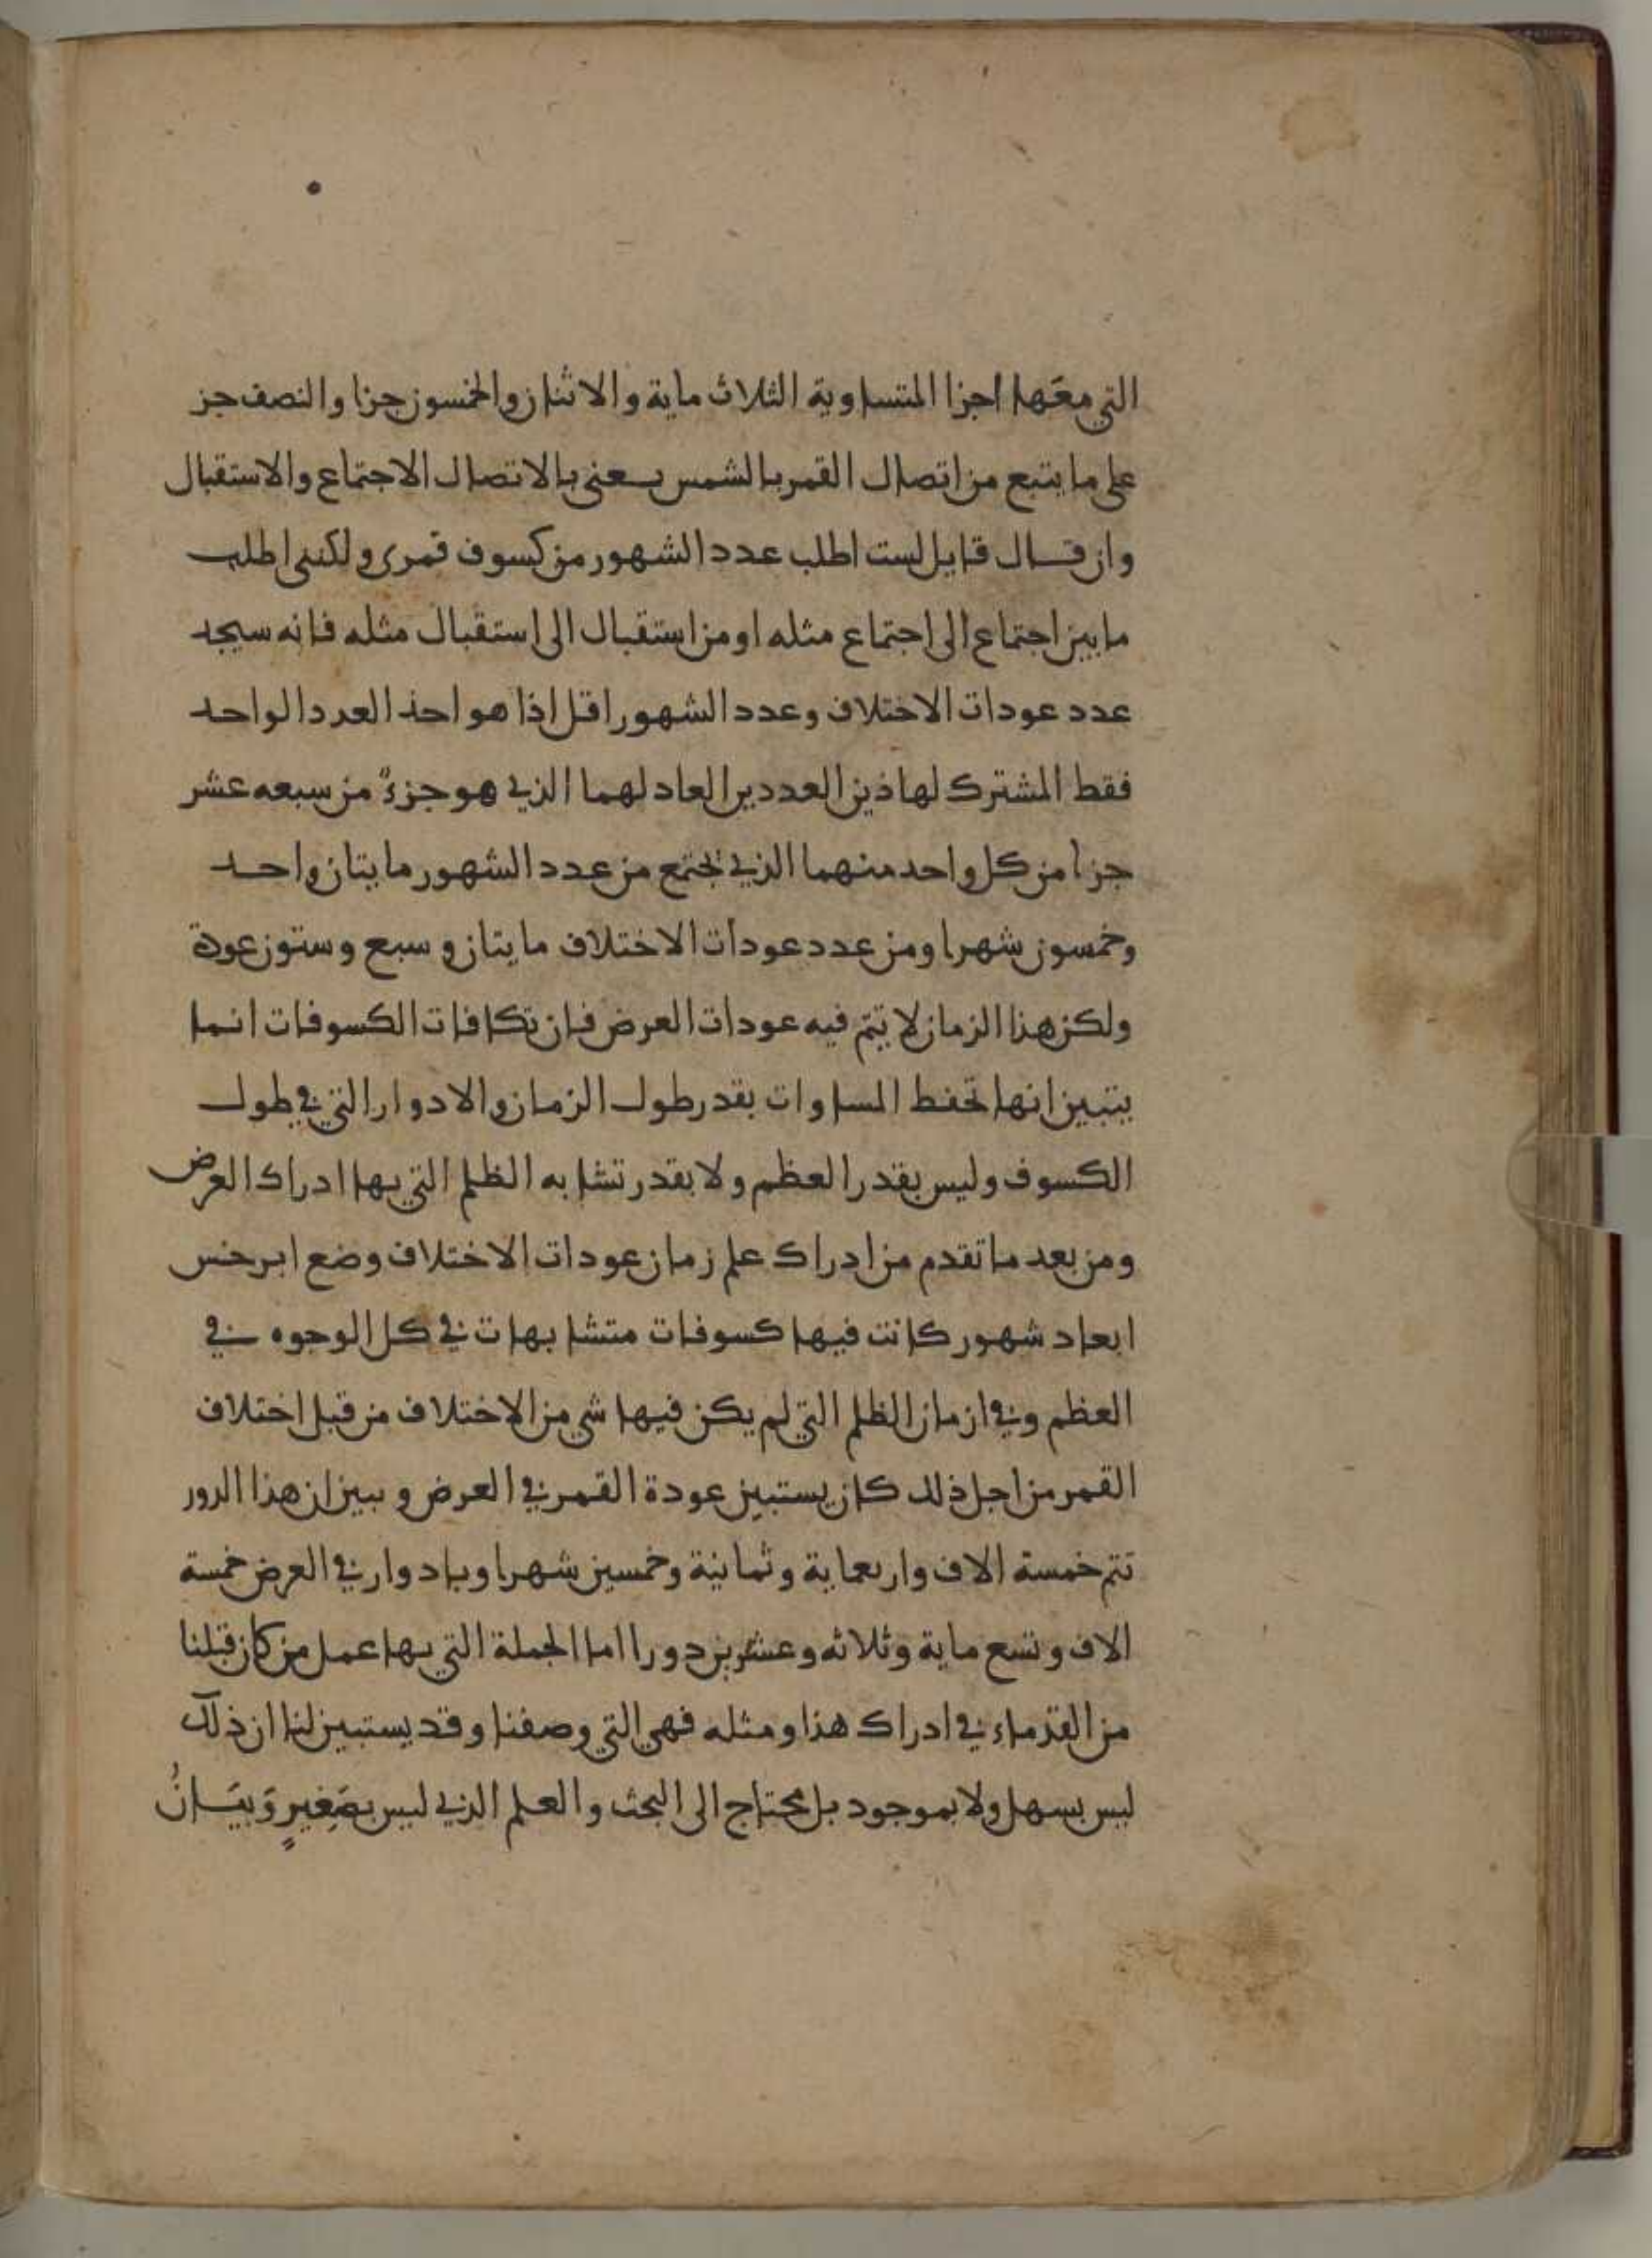 التي معها اجزا المتساوية الثلاث ماية والاثنان والخمسون جزا والنصف جز
على ما يتبع من اتصال القمر بالشمس يعنى بالاتصال الاجتماع والاستقبال
وان قال قايل لست اطلب عدد الشهور من كسوف قمرى ولكننى اطلب
ما بين اجتماع الى اجتماع مثله او من استقبال الى استقبال مثله فانه سيجد
عدد عودات الاختلاف وعدد الشهور اقل اذا هو اخذ العدد الواحد
فقط المشترك لهاذين العددين العاد لهما الذي هو جزءٌ من سبعه عشر
جزا من كل واحد منهما الذي يجتمع من عدد الشهور مايتان واحد
وخمسون شهرا ومن عدد عودات الاختلاف مايتان وسبع وستون عودة
ولكن هذا الزمان لا يتم فيه عودات العرض فان تكافات الكسوفات انما
يتبين انها تحفط المساوات بقدر طول الزمان والادوار التي في طول
الكسوف وليس بقدر العظم ولا بقدر تشابه الظلم التي بها ادراك العرض
ومن بعد ما تقدم من ادراك علم زمان عودات الاختلاف وضع ابرخس
ابعاد شهور كانت فيها كسوفات متشابهات في كل الوجوه في
العظم وفي ازمان الظلم التي لم يكن فيها شي من الاختلاف من قبل اختلاف
القمر من اجل ذلك كان يستبين عودة القمر في العرض وبين ان هذا الدور
تتم خمسة الاف واربعماية وثمانية وخمسين شهرا وبادوار في العرض خمسة
الاف وتسع ماية وثلاثه وعشرين دورا اما الجملة التي بها عمل من كان قبلنا
من القدماء في ادراك هذا ومثله فهي التي وصفنا وقد يستبين لنا ان ذلك
ليس بسهل ولا بموجود بل محتاج الى البحث والعلم الذي ليس بصَغِيرٍ وَبيَانُ